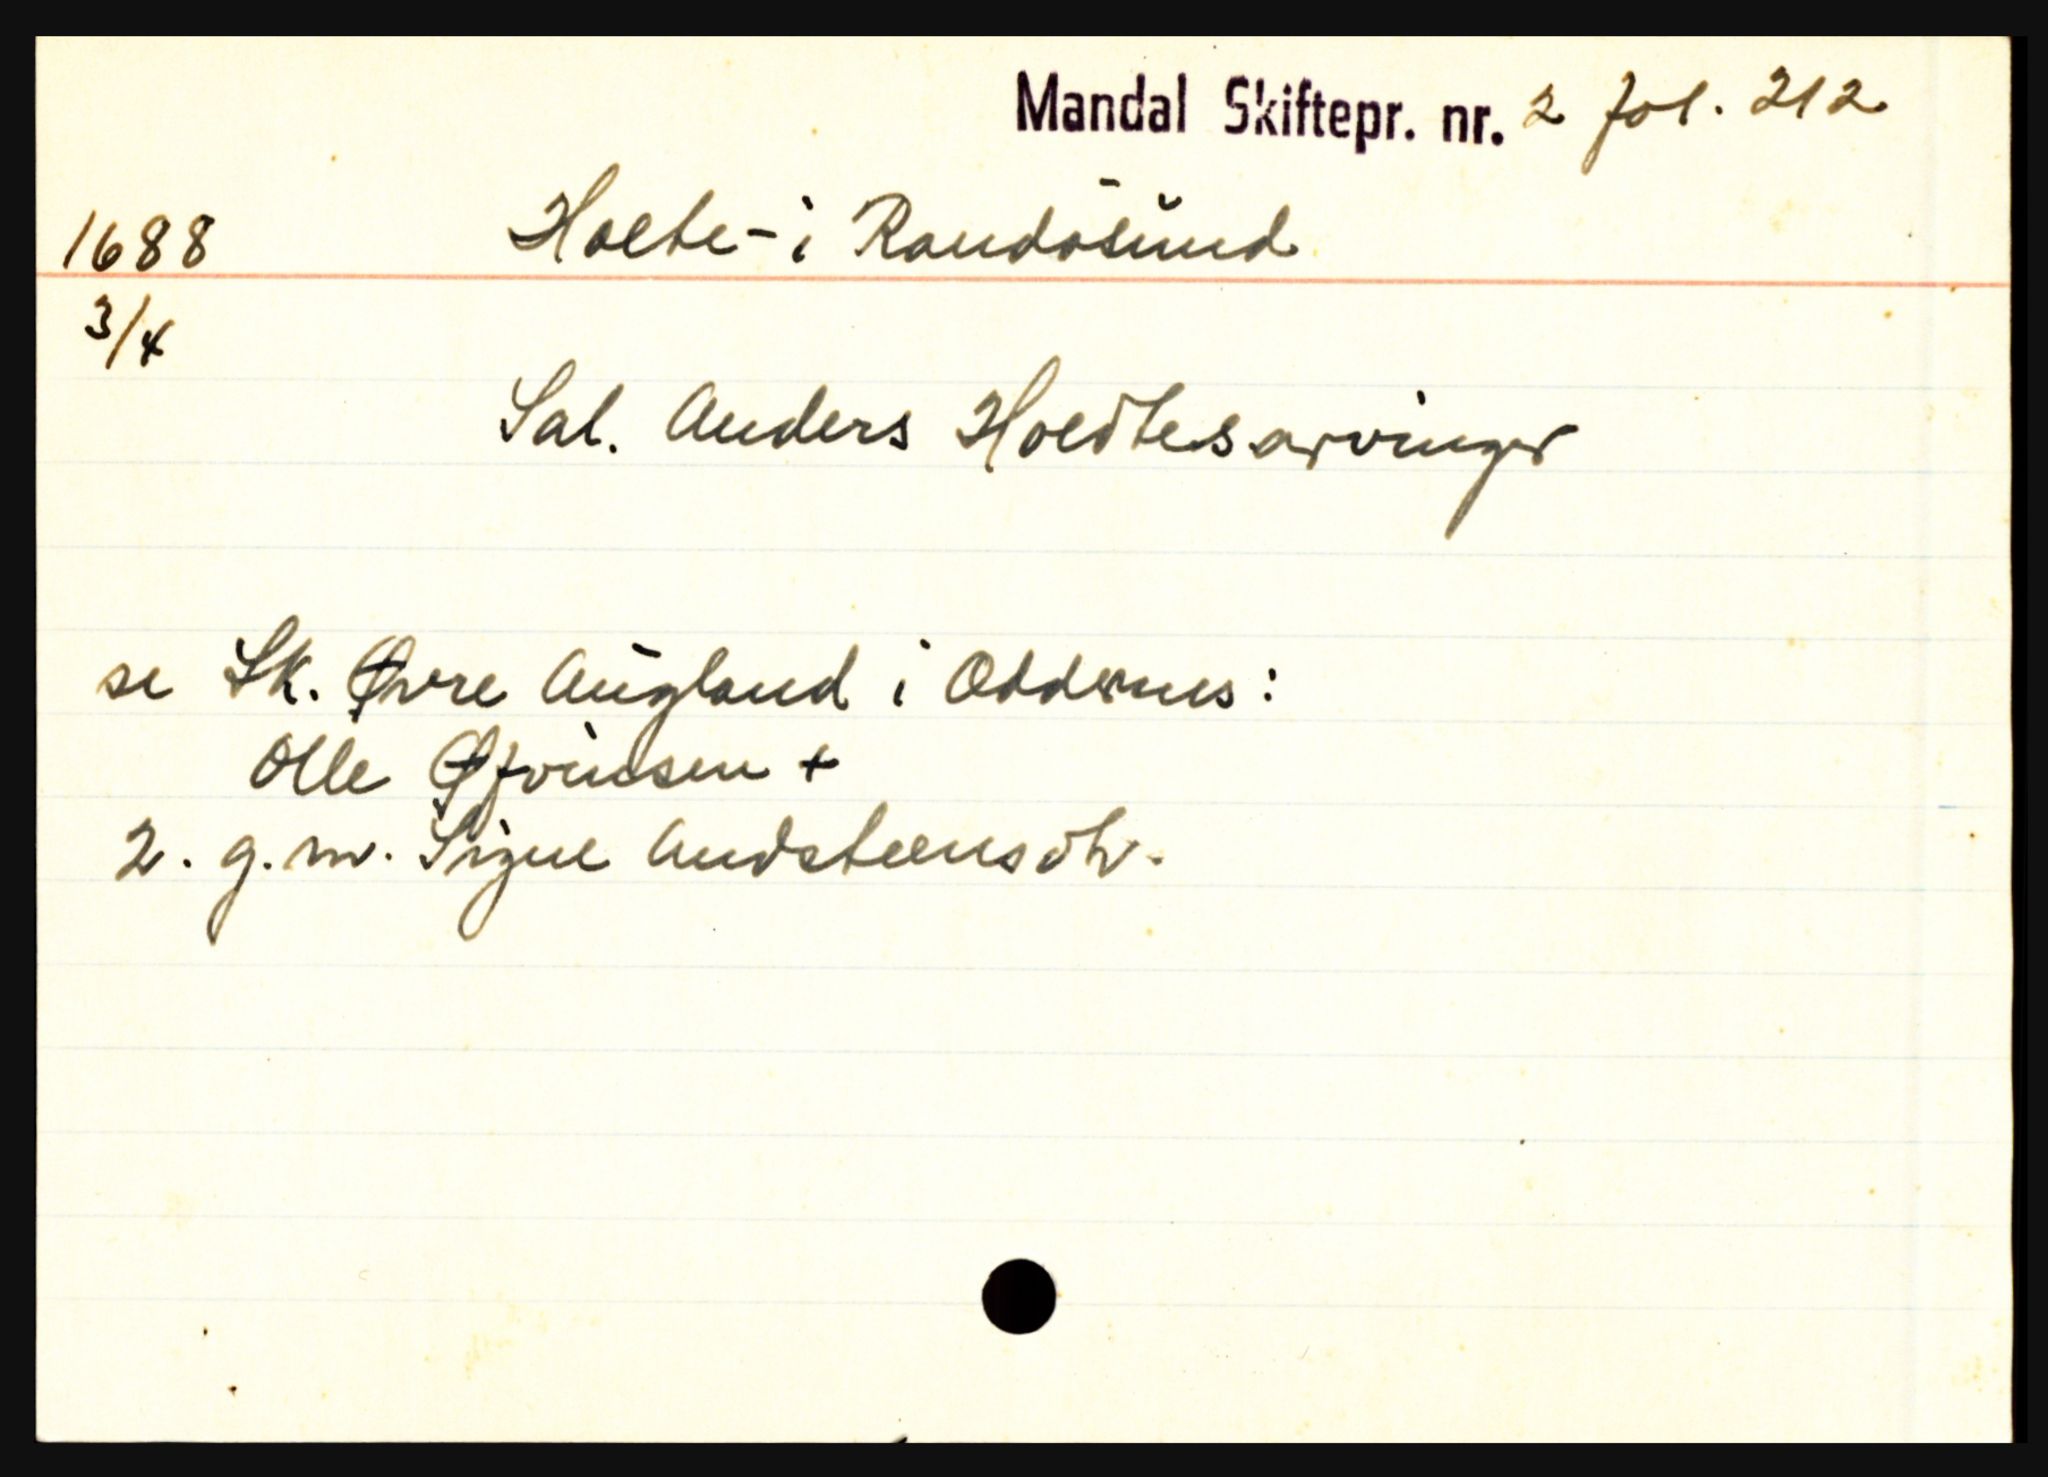 Mandal Skiftepr. nr. 2 fol. 212
1688 Holte - i Randøsund
3/4
Sal. Anders Holdtes arvinger
se Sk. Øvre Augland i Oddernes:
Olle Øfvinsen +
2. g.m. Signe Andsteensdtr.